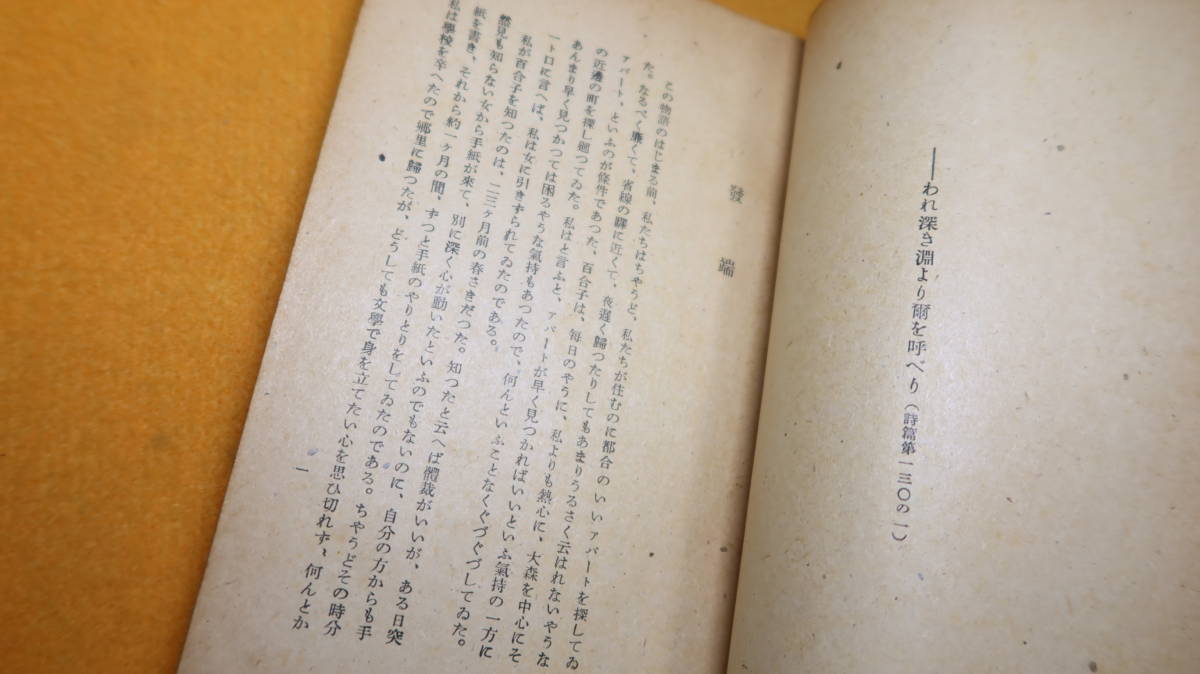 ――われ深き淵より爾を呼べり(詩篇第一三〇の一)
發端
この物語のはじまる前、私たちはちやうど、私たちが住むのに都合のいいアパートを探してゐ
た。なるべく廉くて、省線の驛に近くて、夜遲く歸つたりしてもあまりうるさく云はれないやうな
アパート、といふのが條件であつた、百合子は、毎日のやうに、私よりも熱心に、大森を中心にそ
の近邊の町を探し廻つてゐた。私はと言ふと、アパートが早く見つかればいいといふ氣持の一方に
あんまり早く見つかつては困るやうな氣持もあつたので、何んといふことなくぐづぐづしてゐた。
一ト口に言へば、私は女に引きずられてゐたのである。
私が百合子を知つたのは、二三ヶ月前の春さきだつた。知つたと云へば體裁がいいが、ある日突
然見も知らない女から手紙が來て、別に深く心が動いたといふのでもないのに、自分の方からも手
紙を書き、それから約一ヶ月の間、ずつと手紙のやりとりをしてゐたのである。ちやうどその時分
私は學校を卒へたので郷里に歸つたが、どうしても文學で身を立てたい心を思ひ切れず、何んとか
一